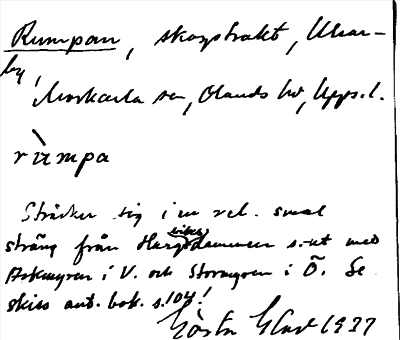 Rumpan, skogstrakt, Ukar-
by,
Morkarla sn, Olands hd, Upps. l.
rùmpa
Sträcker sig i en rel. smal
sträng från Hargsdammen s.-ut med
i V. och Stormyren i Ö. Se
skiss ant. bok. s. 104!
Gösta 1937